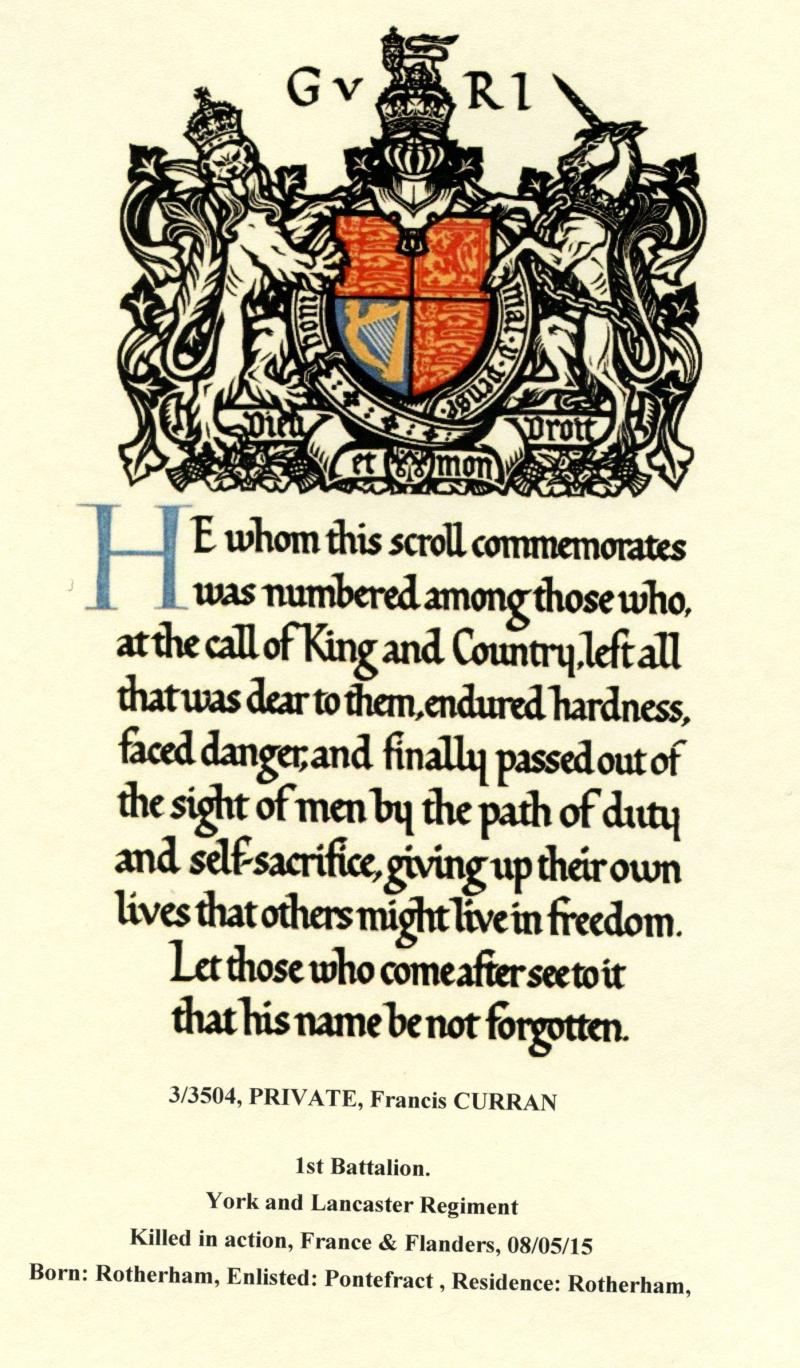 G V R I
honi
mal · y · pense
Dieu
Droit
et mon
HE whom this scroll commemorates
was numbered among those who,
at the call of King and Country, left all
that was dear to them, endured hardness,
faced danger, and finally passed out of
the sight of men by the path of duty
and self-sacrifice, giving up their own
lives that others might live in freedom.
Let those who come after see to it
that his name be not forgotten.
3/3504, PRIVATE, Francis CURRAN
1st Battalion.
York and Lancaster Regiment
Killed in action, France & Flanders, 08/05/15
Born: Rotherham, Enlisted: Pontefract , Residence: Rotherham,